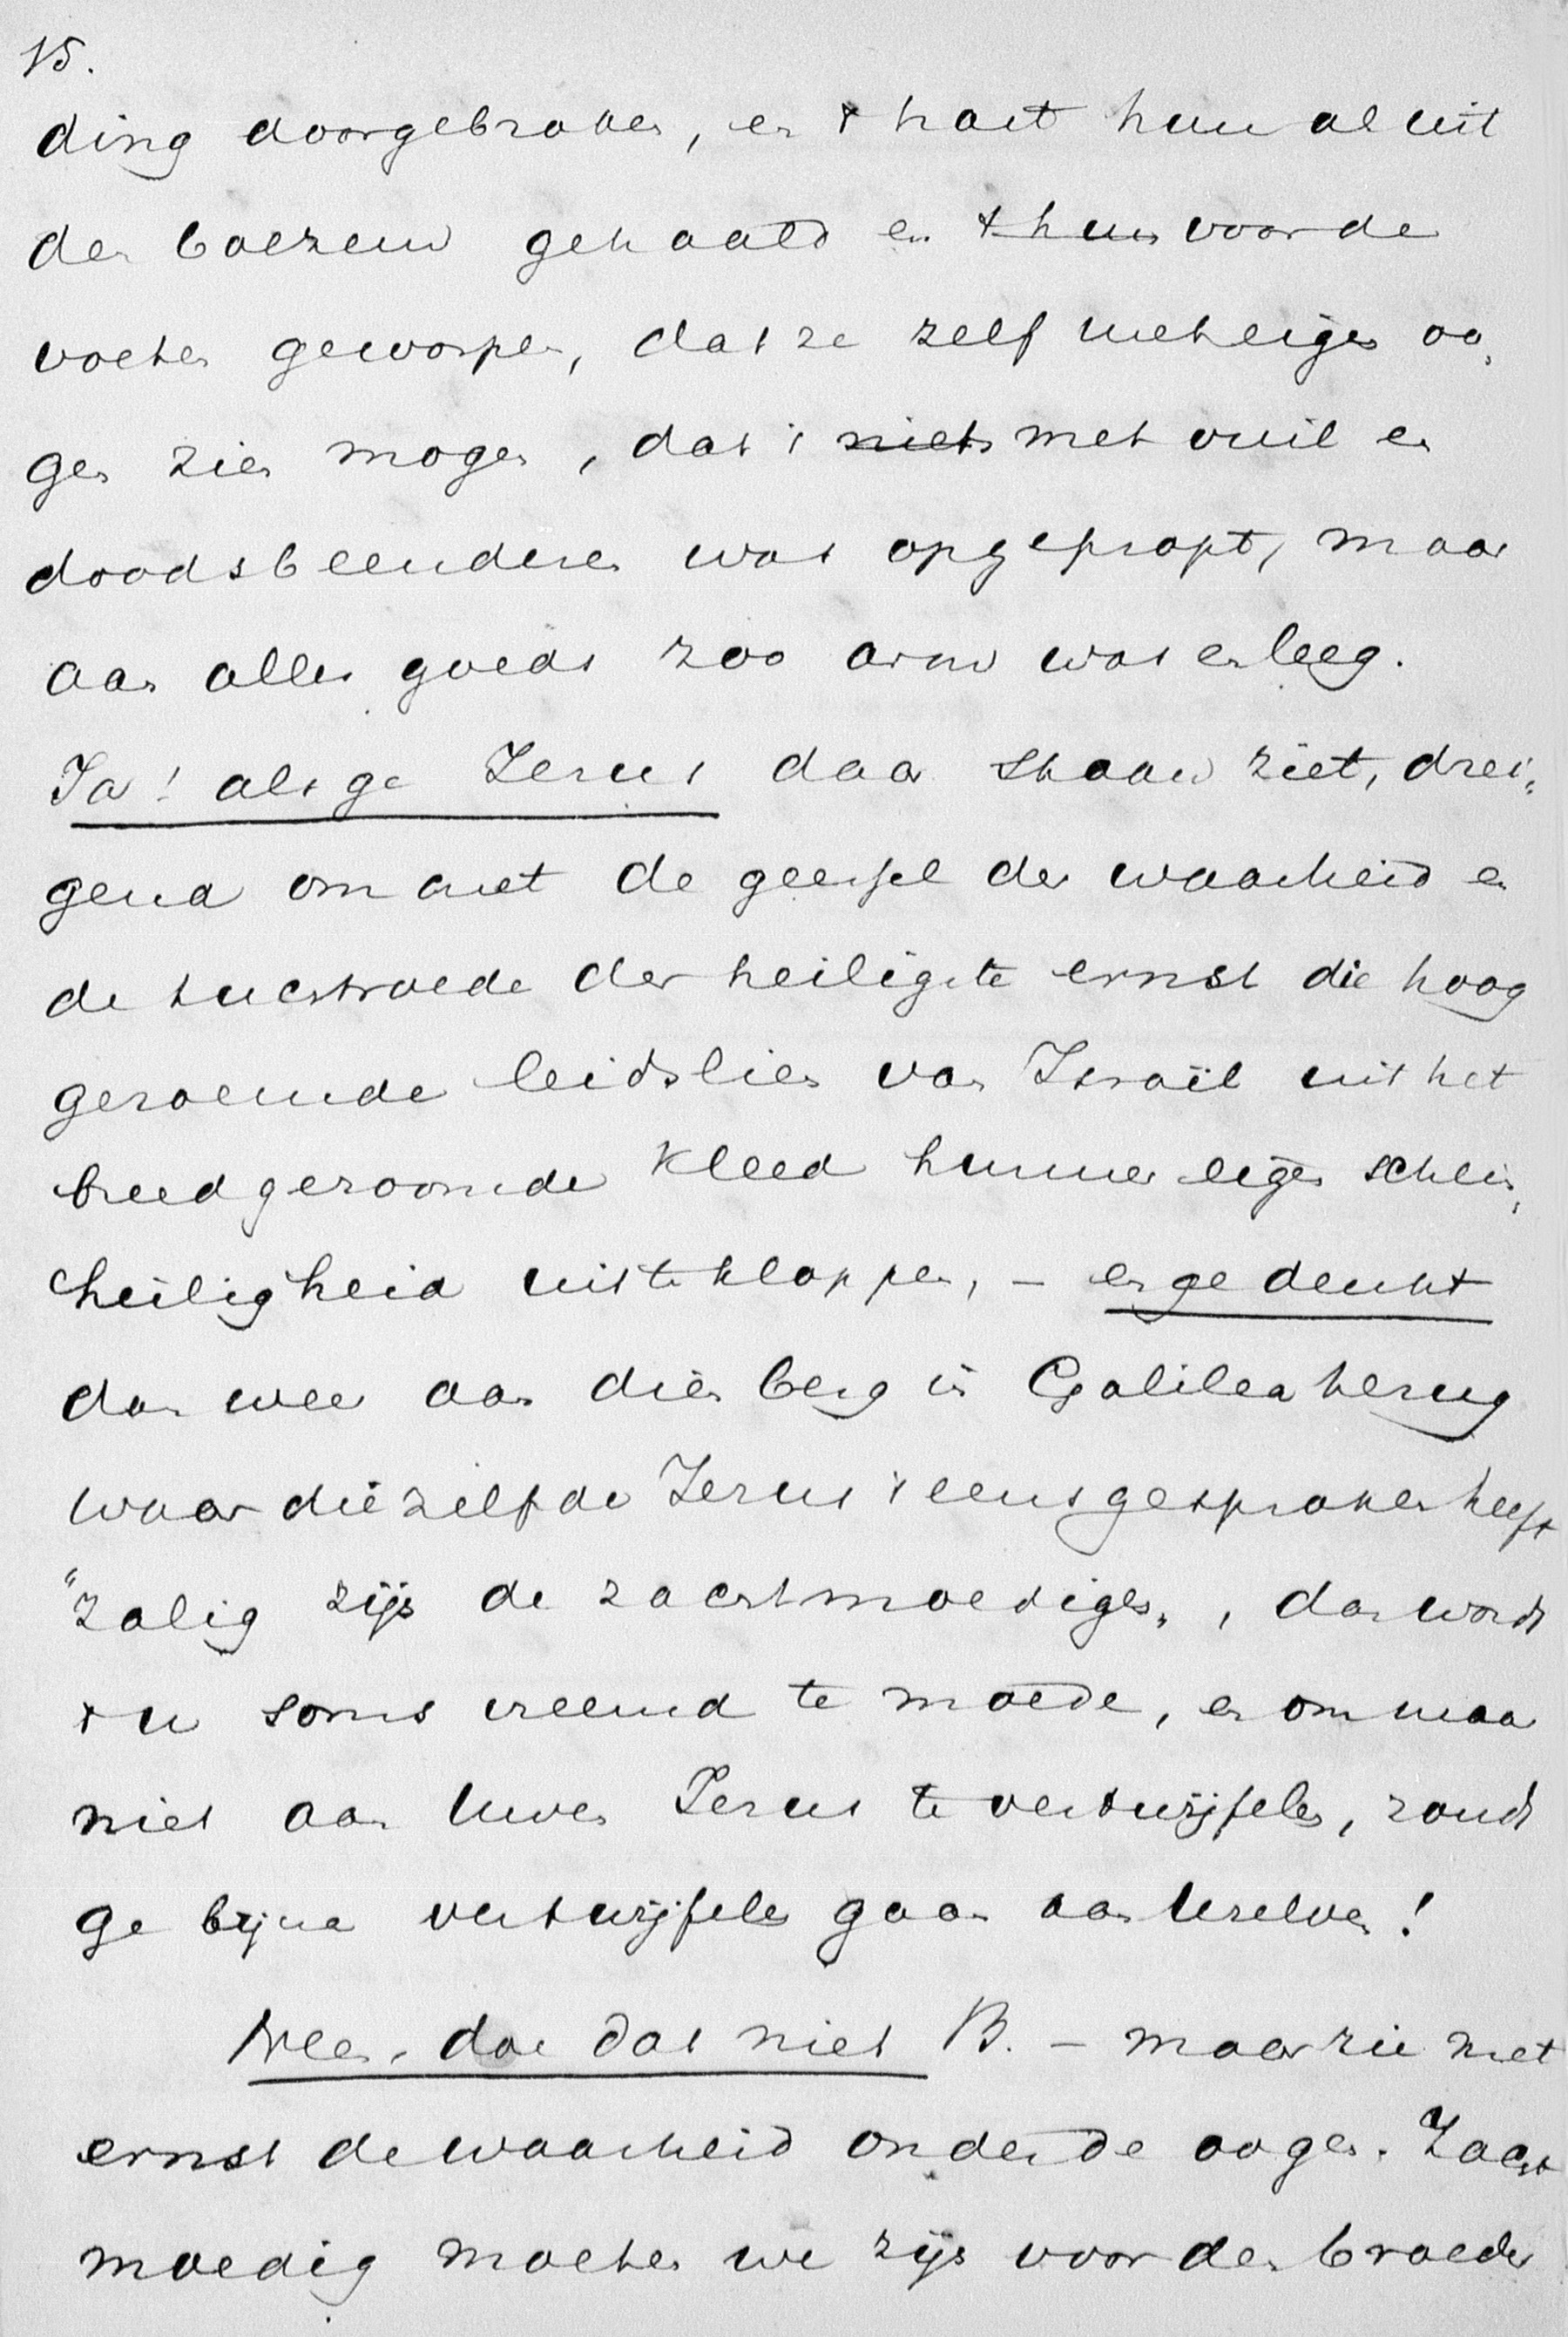 15.
ding doorgebroken, en 't hart hun al uit
den boezem gehaald en 't hun voor de
voeten geworpen, dat ze zelf met eigen oo,
gen zien mogen, dat 't niets met vuil en
doodsbeenderen was opgepropt, maar
aan alles goeds zoo arm was en leeg.
Ja! als ge Jezus daar staan ziet, drei,
gend om met de geessel der waarheid en
de tuchtroede der heiligste ernst die hoog
geroemde leidslien van Israël uit het
breedgezoomde kleed hunner eigen schijn,
heiligheid uit te kloppen, – en ge denkt
dan weer aan dien berg in Galilea terug
waar diezelfde Jezus 't eens gesproken heeft
"zalig zijn de zachtmoedigen", dan wordt
't u soms vreemd te moede, en om maar
niet aan Uwen Jezus te vertwijfelen, zoudt
ge bijna vertwijfelen gaan aan Uzelven!
Neen, doe dat niet B. – maar zie met
ernst de waarheid onder de oogen. Zacht
moedig moeten we zijn voor den broeder